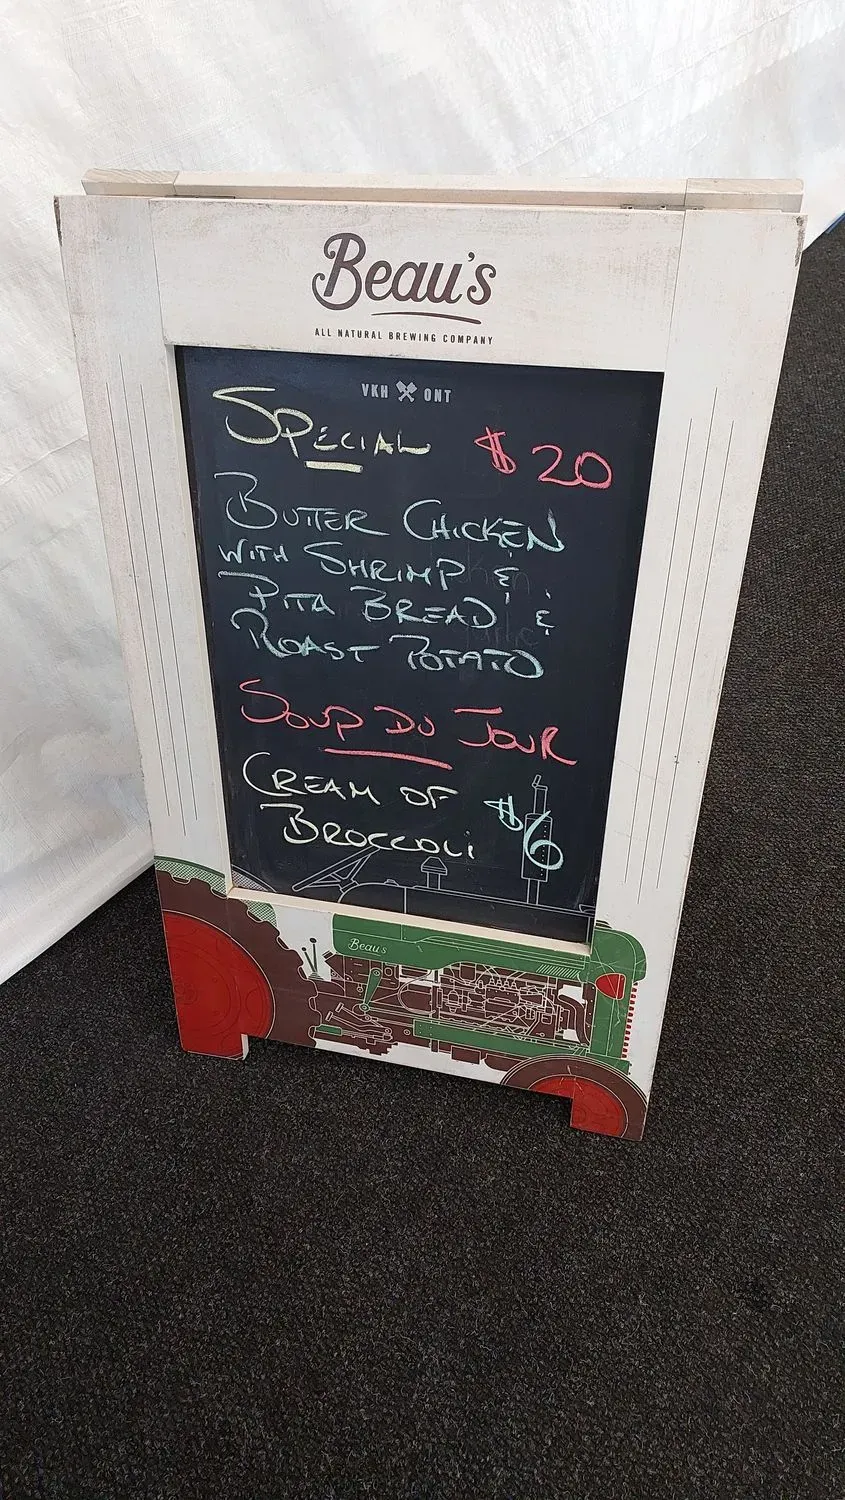 Beau's
ALL NATURAL BREWING COMPANY
VKH ONT
SPECIAL $20
BUTTER CHICKEN
WITH SHRIMP &
PITA BREAD &
ROAST POTATO
SOUP DU JOUR
CREAM OF
BROCCOLI $6
Beau's